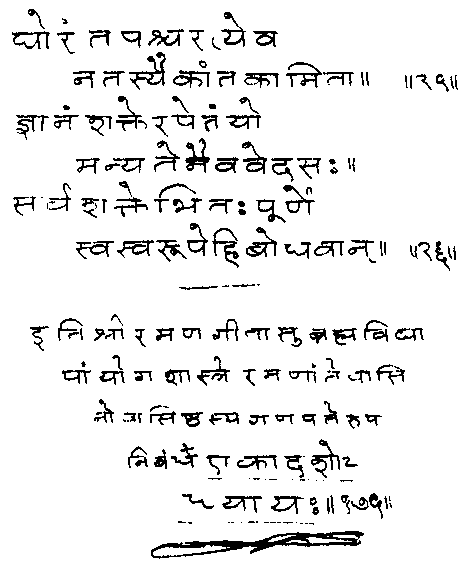 घोरं तपश्चरत्येव
न तस्यैकांतकामिता॥ ॥२५॥
ज्ञानं शक्तेरपेतं यो
मन्यते नैव वेद सः॥
सर्व शक्तेभितः पूर्णे
स्वस्वरूपे हि बोधवान्॥ ॥२६॥
इति श्रीरमणगीतासु ब्रह्मविद्या
यां योगशास्त्रे रमणांतेवासि
नो वासिष्ठस्य गणपतेरुप
निबंधे एकादशोऽ
ध्यायः॥१७५॥